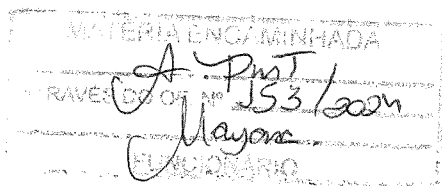 MATÉRIA ENCAMINHADA
A. PMT
RAVÉS DO OF. Nº 153/2024
Mayara
FUNCIONÁRIO